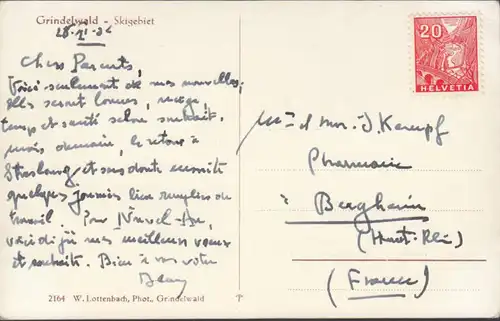 Grindelwald - Skigebiet
Chers Parents,
Voici seulement de mes nouvelles;
elles seront bonnes, neige,
temps et santé selon souhait.
mais demain, le retour à
Strasbourg et sans doute ensuite
quelques journées bien remplies de
travail. Pour Nouvel-An,
voici déjà mes meilleurs voeux
et souhaits. Bien à vous votre
2164 W. Lottenbach, Phot., Grindelwald
20
HELVETIA
Mme et Mr. J. Kempf
Pharmacie
à Bergheim
(Haut-Rhin)
(France)